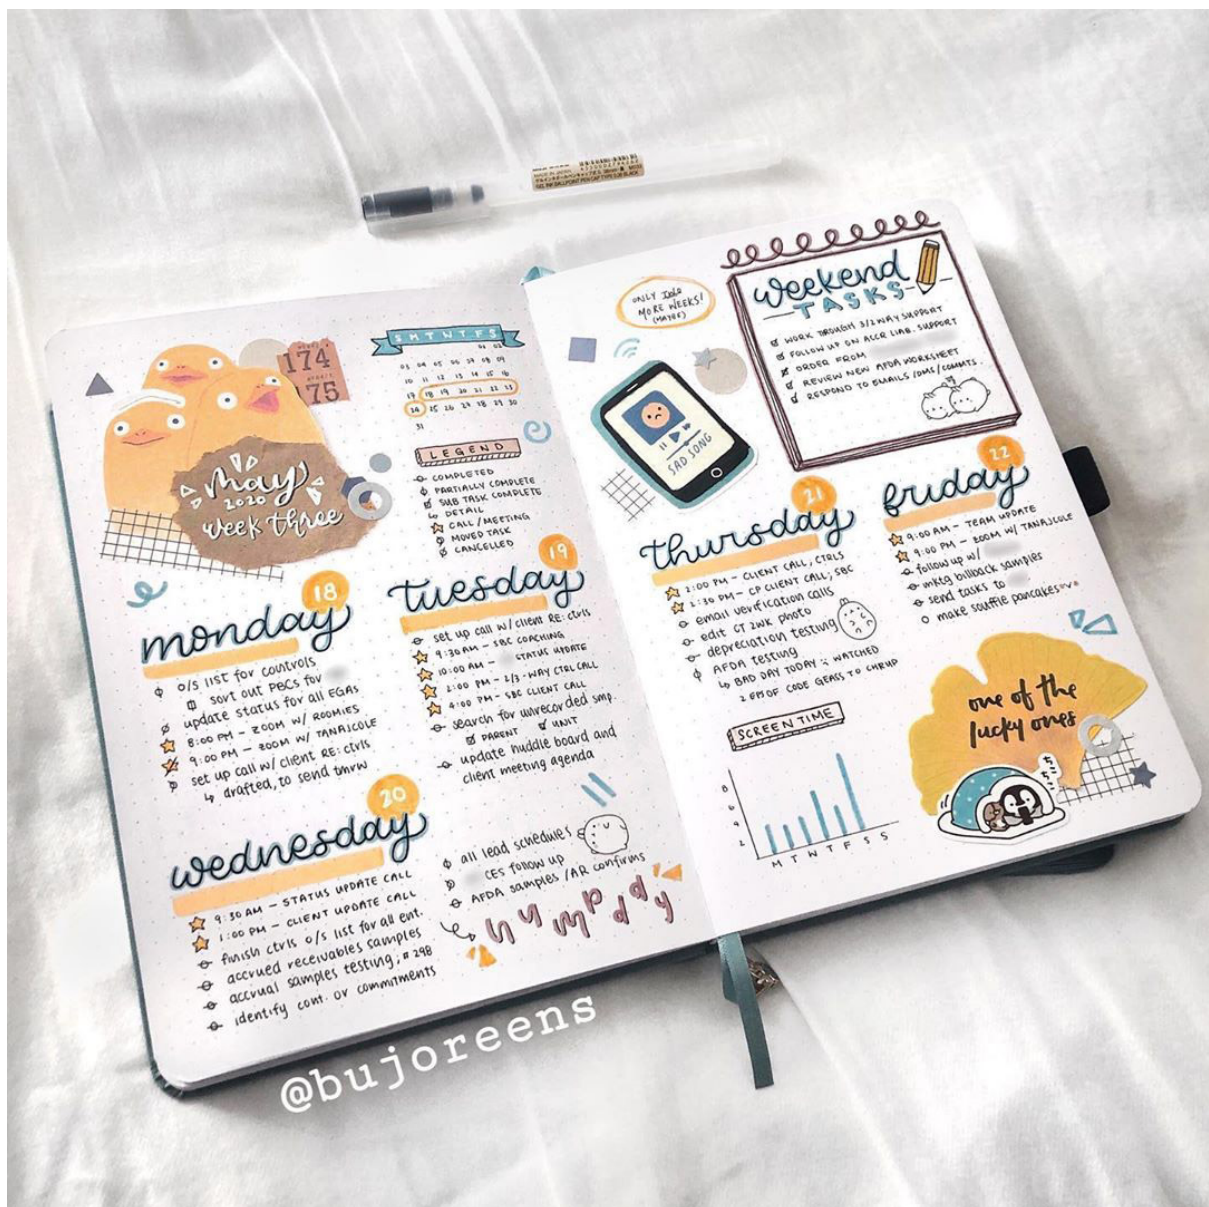 MADE IN JAPAN
GEL INK BALLPOINT PEN CAP TYPE 0.38 BLACK
174
175
may
2020
week three
S M T W T F S
01 02
03 04 05 06 07 08 09
10 11 12 13 14 15 16
17 18 19 20 21 22 23
24 25 26 27 28 29 30
31
LEGEND
COMPLETED
PARTIALLY COMPLETE
SUB TASK COMPLETE
DETAIL
CALL/MEETING
MOVED TASK
CANCELLED
18
monday
o/s list for controls
sort out PBCs for
update status for all EGAs
8:00 PM - ZOOM W/ ROOMIES
9:00 PM - ZOOM W/ TANAJCOLE
set up call w/ client RE: ctrls
drafted, to send tmrw
19
tuesday
set up call w/ client RE: ctrls
9:30 AM - SBC COACHING
10:00 AM - STATUS UPDATE
2:00 PM - 2/3-WAY CTRL CALL
4:00 PM - SBC CLIENT CALL
search for unrecorded smp.
PARENT UNIT
update huddle board and
client meeting agenda
20
wednesday
9:30 AM - STATUS UPDATE CALL
1:00 PM - CLIENT UPDATE CALL
finish ctrls o/s list for all ent.
accrued receivables samples
accrual samples testing; # 298
identify cont. or commitments
all lead schedules
CES follow up
AFDA samples / AR confirms
humpday
ONLY
MORE WEEKS!
(MAYBE)
SAD SONG
weekend
TASKS
WORK THROUGH 3/2 WAY SUPPORT
FOLLOW UP ON ACCR LIAB. SUPPORT
ORDER FROM
REVIEW NEW AFDA WORKSHEET
RESPOND TO EMAILS/DMS/COMMTS.
21
thursday
2:00 PM - CLIENT CALL, CTRLS
2:30 PM - CP CLIENT CALL; SBC
email verification calls
edit CT 2WK photo
depreciation testing
AFDA testing
BAD DAY TODAY :; WATCHED
2 EPS OF CODE GEASS TO CHRUP
22
friday
9:00 AM - TEAM UPDATE
9:00 PM - ZOOM W/ TANAJCOLE
follow up w/
mktg billback samples
send tasks to
make soufflé pancakes
SCREENTIME
8
6
4
2
M T W T F S S
one of the
lucky ones
@bujoreens